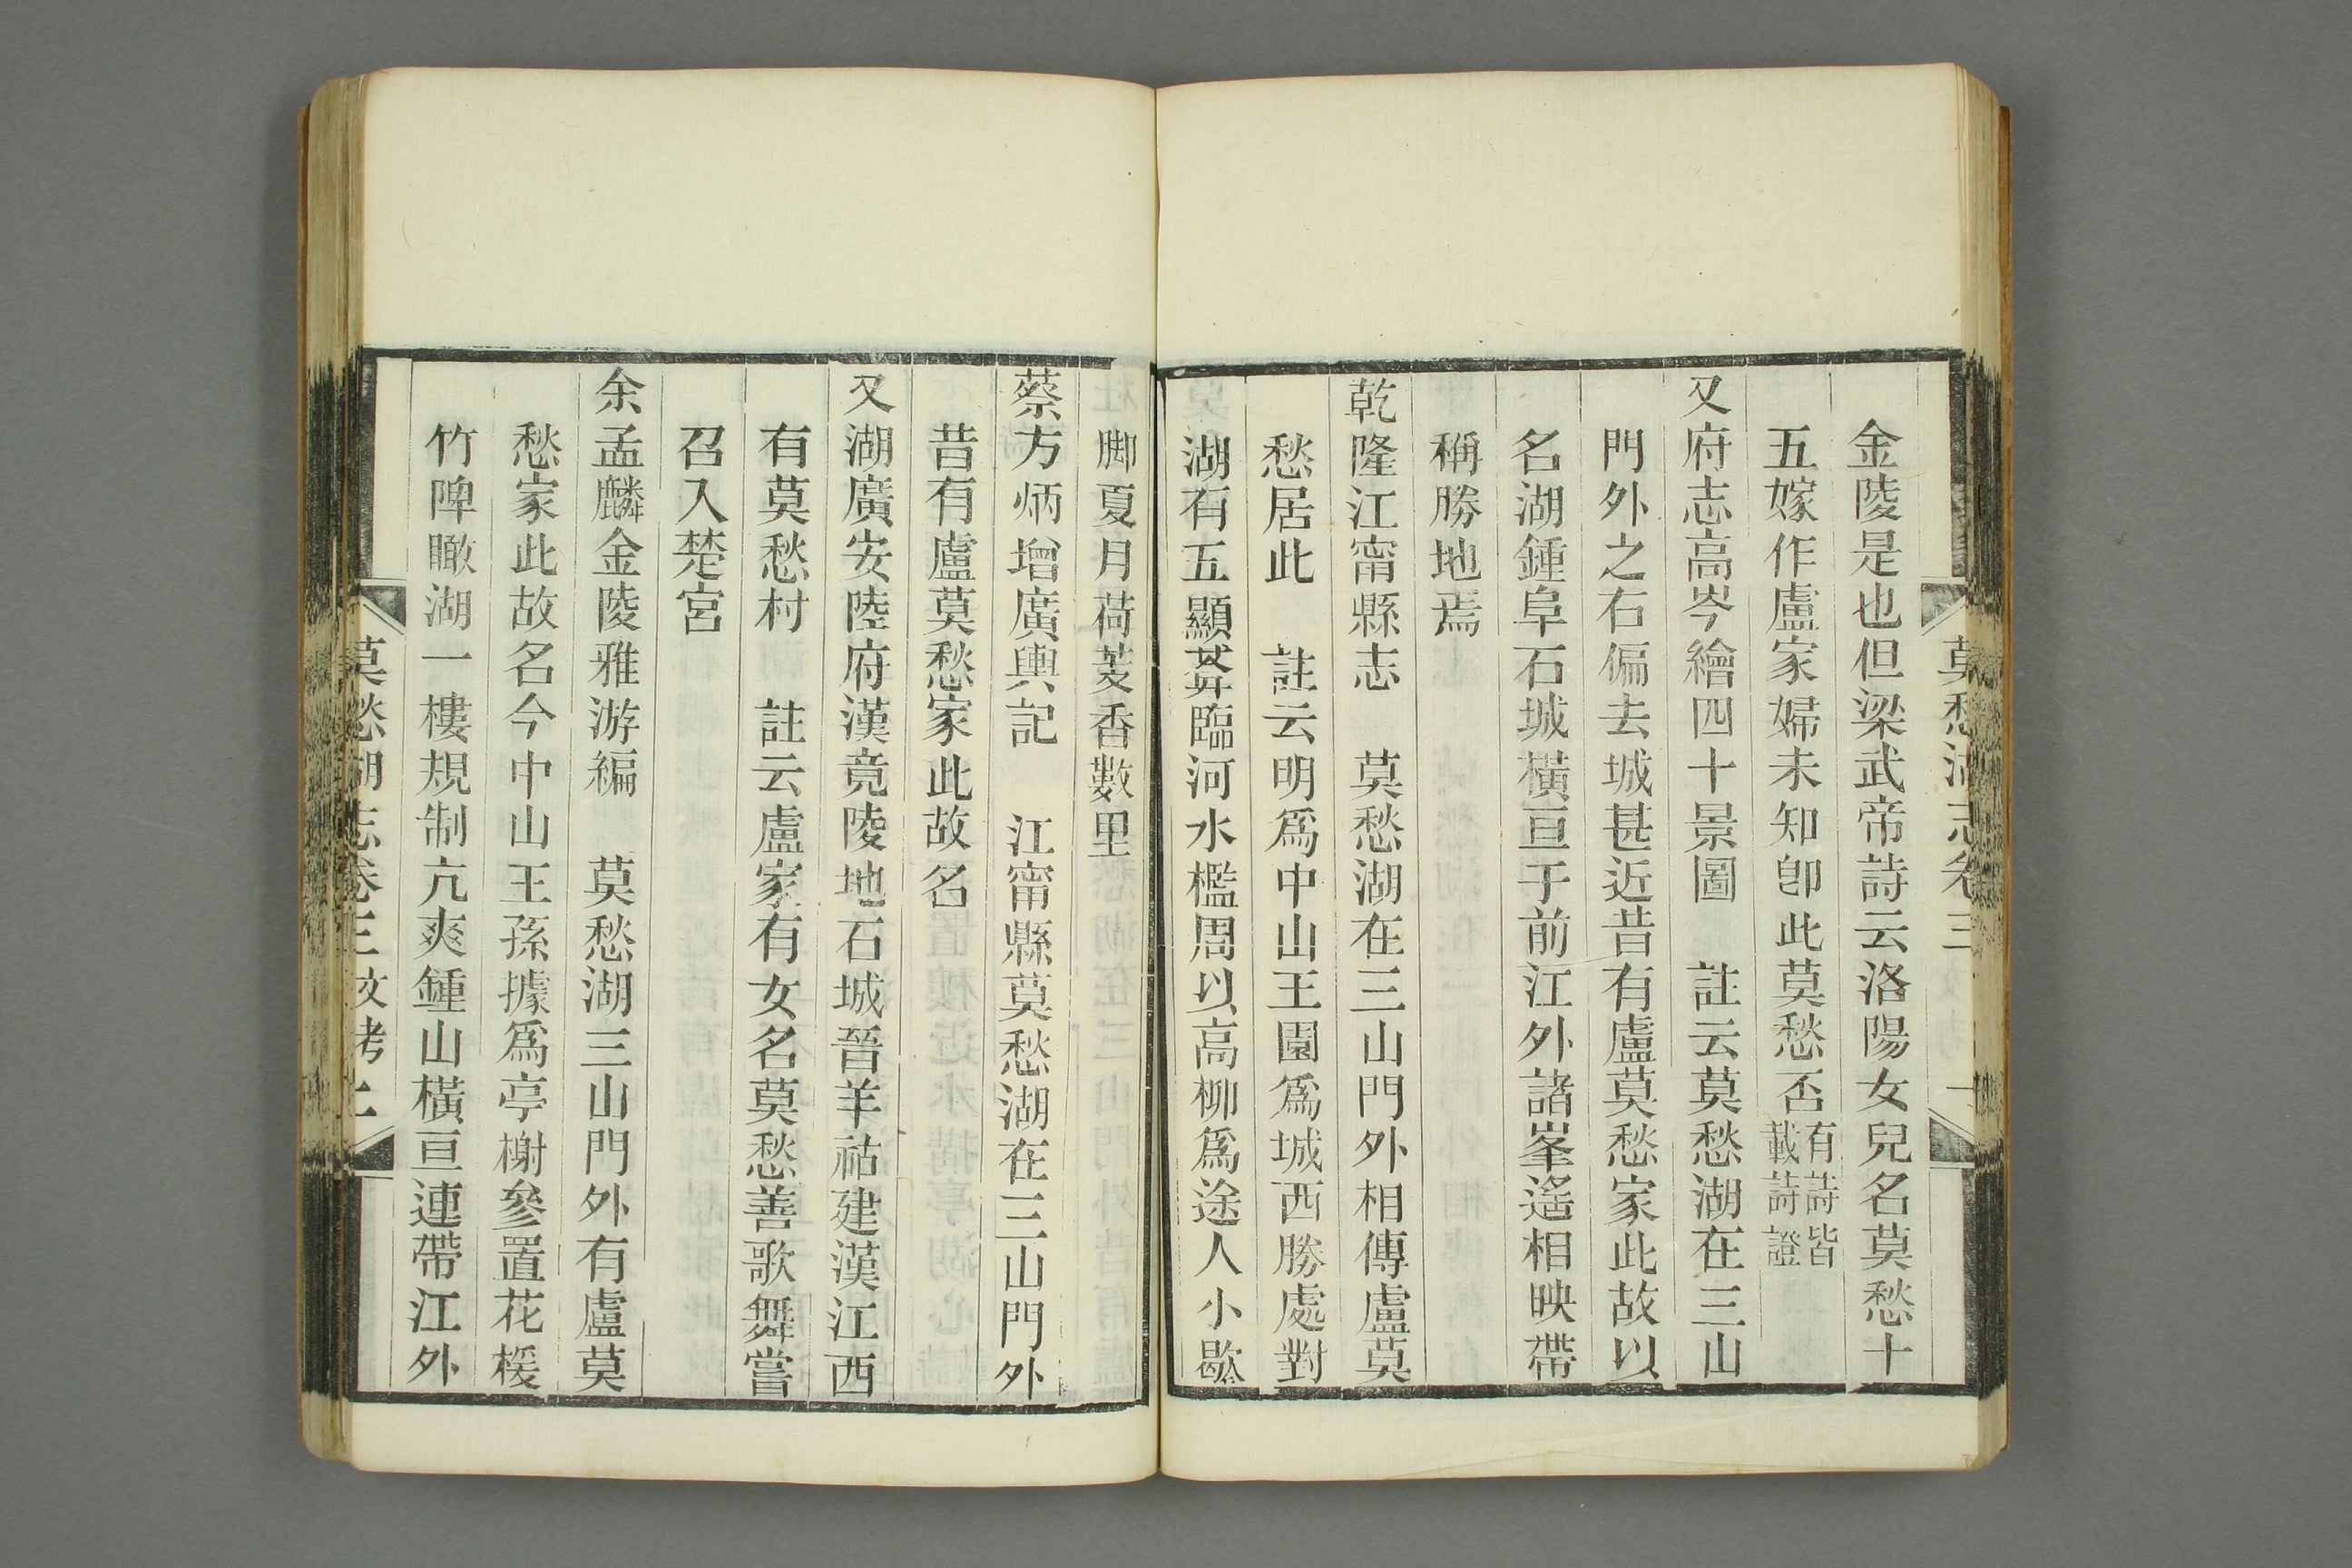 莫愁湖志卷三
一
金陵是也但梁武帝詩云洛陽女兒名莫愁十
五嫁作盧家婦未知卽此莫愁否有詩皆載詩證
又府志高岑繪四十景圖　註云莫愁湖在三山
門外之石偏去城甚近昔有盧莫愁家此故以
名湖鍾阜石城橫亘于前江外諸峯遙相映帶
稱勝地焉
乾隆江甯縣志　莫愁湖在三山門外相傳盧莫
愁居此　註云明爲中山王園爲城西勝處對
湖有五顯葊臨河水檻周以高柳爲途人小歇
脚夏月荷芰香數里
蔡方炳增廣輿記　江甯縣莫愁湖在三山門外
昔有盧莫愁家此故名
又湖廣安陸府漢竟陵地石城晉羊祜建漢江西
有莫愁村　註云盧家有女名莫愁善歌舞嘗
召入楚宮
余孟麟金陵雅游編　莫愁湖三山門外有盧莫
愁家此故名今中山王孫據爲亭榭參置花棧
竹陴瞰湖一樓規制亢爽鍾山橫亘連帶江外
莫愁湖志卷三文考上